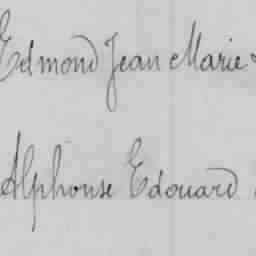 Edmond Jean Marie
Alphonse Edouard